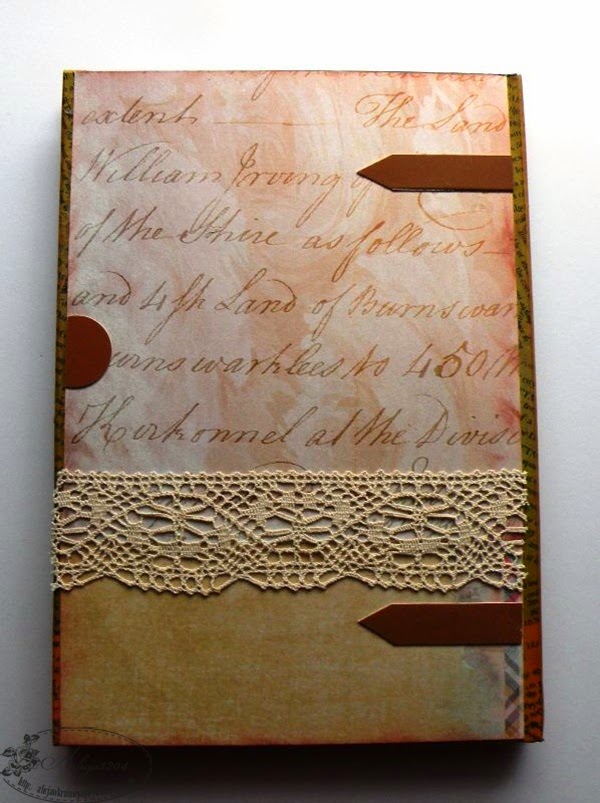 extent — The Land
William Irving of
of the Shire as follows —
and 4/ph Land of Burnswar
urnswarkbees to 450 M
Kirkonnel at the Divisi